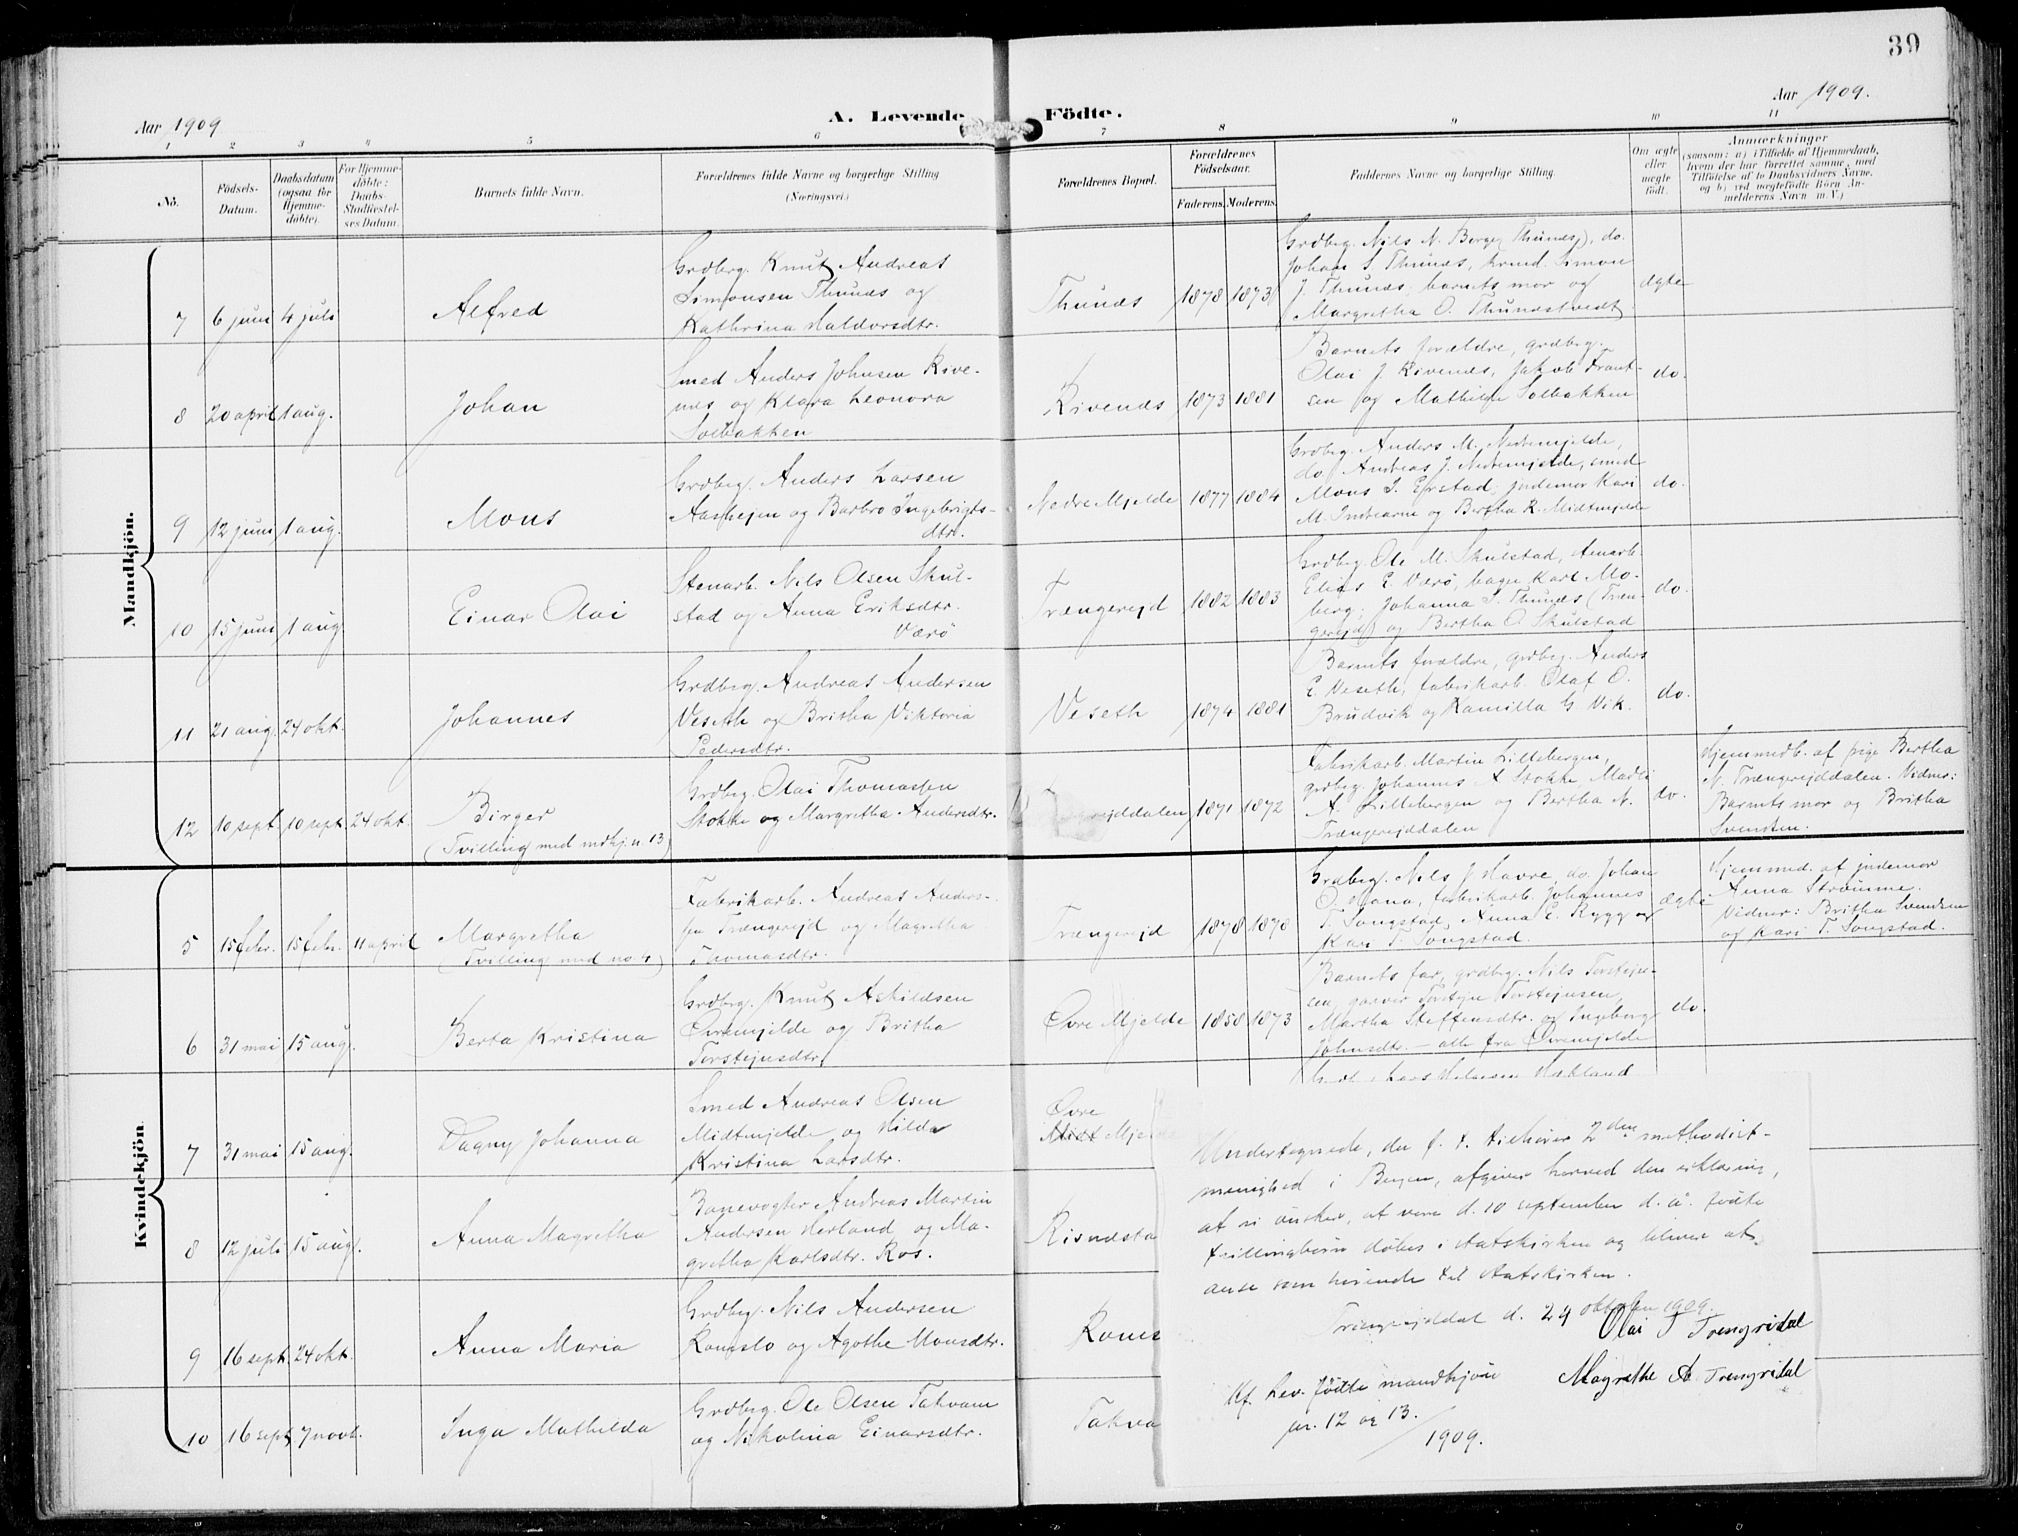 39
Aar 1909
A. Levende Födte.
Aar 1909.
1 2 3 4 5 6 7 8 9 10 11
No.
Födsels-Datum.
Daabsdatum (ogsaa for Hjemmedöbte).
For Hjemmedöbte: Daabs-Stadfæstelses Datum.
Barnets fulde Navn.
Forældrenes fulde Navne og borgerlige Stilling
(Næringsvei.)
Forældrenes Bopæl.
Forældrenes Födselsaar.
Faderens. Moderens.
Faddernes Navne og borgerlige Stilling.
Om ægte eller uægte födt.
Anmærkninger
(saasom: a) i Tilfælde af Hjemmedaab, hvem der har forrettet samme, med Tilföielse af to Daabsvidners Navne, og b) ved uægtefödte Börn Anmelderens Navn m. V.)
Mandkjön.
7 6 juni 4 juli Alfred
Grdbrg. Knut Andreas
Simonsen Thunæs og
Kathrina Haldorsdtr.
Thunæs 1878 1873
Grdbrg. Nils N. Berge (Thunæs), do.
Johan S. Thunæs, kvmd. Simon
J. Thunæs, barnets mor og
Margretha O. Thunæstvedt
ægte
8 20 april 1 aug. Johan
Smed Anders Johnsen Rive-
næs og Klara Leonora
Solbakken
Rivenæs 1873 1881
Barnets forældre, grdbrg.
Olai J. Rivenæs, Jakob Frant-
sen og Mathilde Solbakken
do.
9 12 juni 1 aug. Mons
Grdbrg. Anders Larsen
Aasheim og Barbro Ingebrigts-
dtr.
Nedre Mjelde 1877 1884
Grdbrg. Anders M. Nedremjelde,
do. Andreas J. Nedremjelde, smed
Mons J. Erstad, jordemor Kari
M. Indrearne og Bertha R. Midtmjelde
do.
10 15 juni 1 aug. Einar Olai
Stenarb. Nils Olsen Skul-
stad og Anna Eriksdtr.
Værö
Trængereid 1882 1883
Grdbrg. Ole M. Skulstad, stenarb.
Elias E. Værö, bager Karl Mo-
berg, Johanna S. Thunæs (Træn-
gereid) og Bertha O. Skulstad
do.
11 21 aug. 24 okt. Johannes
Grdbrg. Andreas Andersen
Veseth og Britha Viktoria
Pedersdtr.
Veseth 1874 1881
Barnets forældre, grdbrg. Anders
E. Veseth, fabrikarb. Olaf O.
Brudvik og Kamilla G. Vik.
do.
12 10 sept. 10 sept. 24 okt. Birger
(Tvilling med mdkj. n. 13)
Grdbrg. Olai Thomassen
Stokke og Margretha Andersdtr.
Trængereiddalen 1871 1872
Fabrikarb. Martin Lillebergen,
grdbrg. Johannes A. Stokke, Madli
A. Lillebergen og Bertha N.
Trængereiddalen
do.
Hjemmedb. af pige Bertha
N. Trængereiddalen. Vidner:
Barnets mor og Britha
Svendsen.
Kvindekjön
5 15 febr. 15 febr. 11 april Margretha
(Tvilling med no. 4)
Fabrikarb. Andreas Anders.
fra Trængereid og Magretha
Thomasdtr.
Trængereid 1878 1870
Grdbrg. Nils J. Havre, do. Johan
O. Mana, fabrikarb. Johannes
T. Songstad, Anna E. Rygg og
Kari T. Songstad.
ægte
Hjemmed. af jordemor
Anna Strömme.
Vidner: Britha Svendsen
og Kari T. Songstad.
6 31 mai 15 aug. Berta Kristina
Grdbrg. Knut Askildsen
Övremjelde og Britha
Torsteinsdtr.
Övre Mjelde 1858 1873
Barnets far, grdbrg. Nils Torstein-
sen, garver Torstein Torsteinsen,
Martha Steffensdtr. og Ingeborg
Johnsdtr. — alle fra Övremjelde
do.
7 31 mai 15 aug. Dagny Johanna
Smed Andreas Olsen
Midtmjelde og Hilda
Kristina Larsdtr.
Övre
Midt Mjelde
Lars Helgesen Hækland
8 12 juli 15 aug. Anna Magretha
Banevogter Andreas Martin
Andersen Herland og Ma-
gretha Karlsdtr. Ros.
Risnæsta
9 16 sept. 24 okt. Anna Maria
Grdbrg. Nils Andersen
Romslo og Agothe Monsdtr.
Roms
10 16 sept. 7 novb. Inga Mathilda
Grdbrg. Ole Olsen Takvam
og Nikolina Einarsdtr.
Takva
Undertegnede, der f. t. tilhörer 2den methodist-
menighed i Bergen, afgiver herved den erklæring,
at vi önsker, at vore d. 10 september d. å. födte
tvillingbörn döbes i statskirken og bliver at
anse som hörende til statskirken.
Trængereiddal d. 24 oktober 1909.
Olai T Trengridal
Magrethe A Trengridal
Kf. Lev. födte mandkjön
nr. 12 og 13.
/1909.